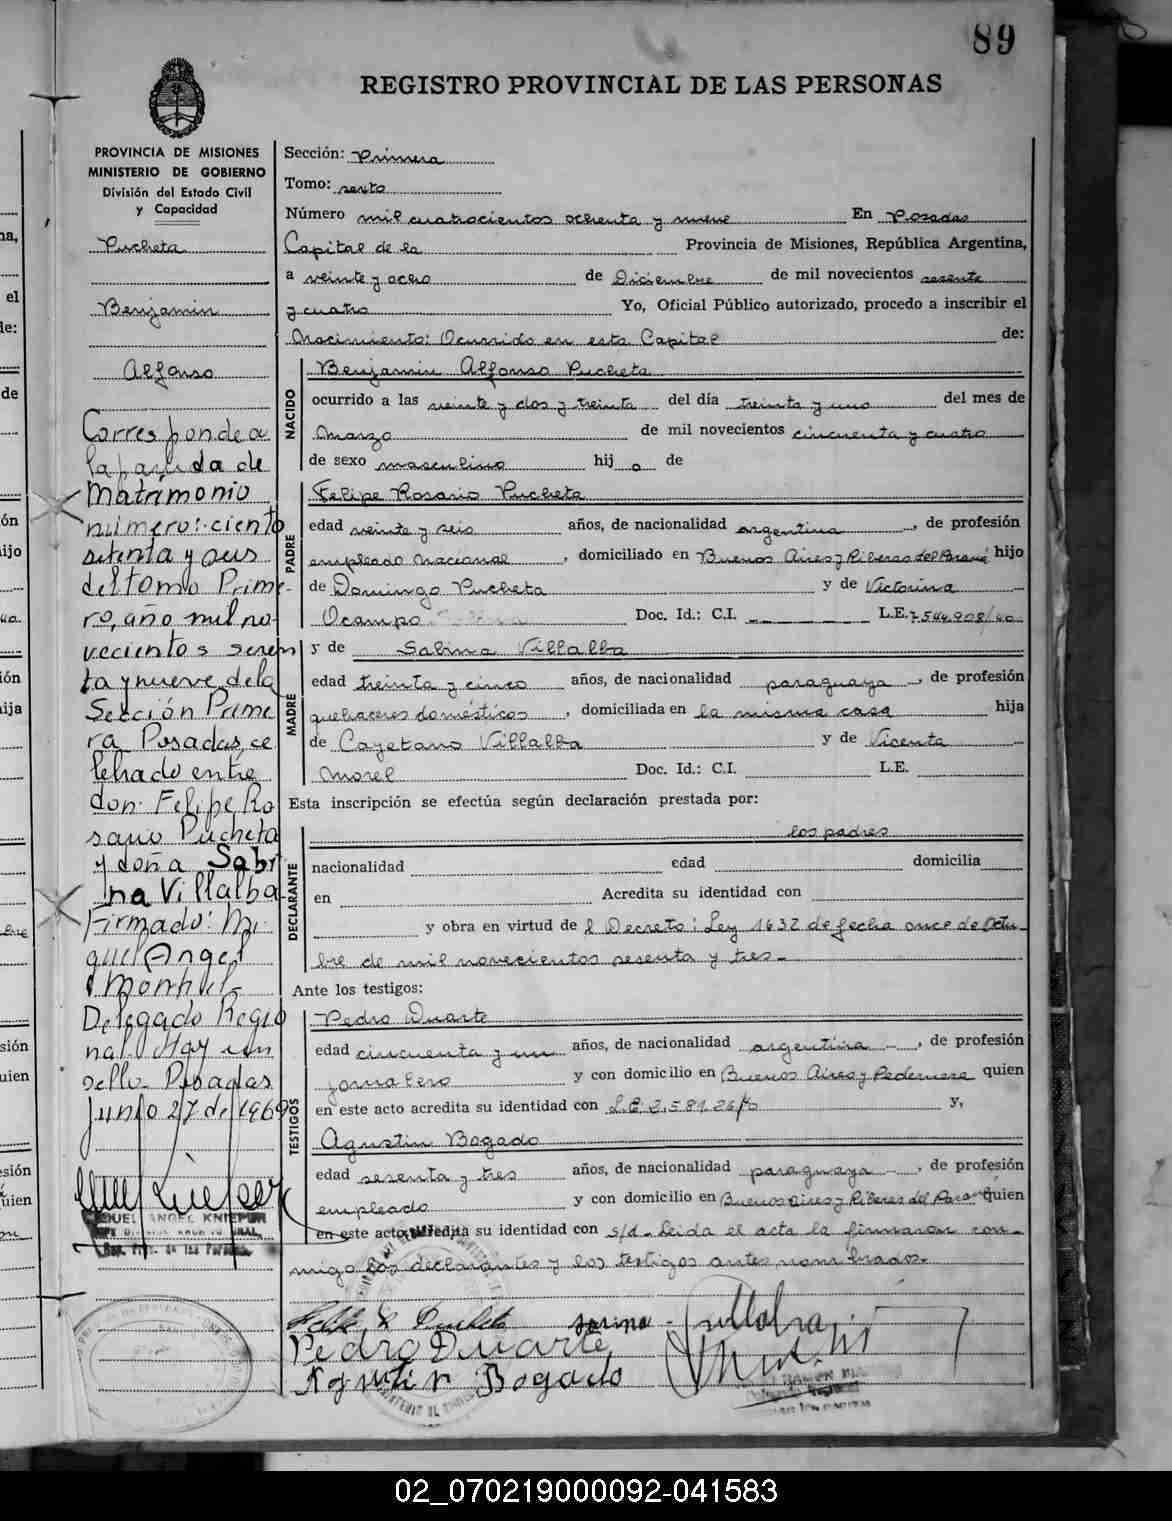 89
REGISTRO PROVINCIAL DE LAS PERSONAS
PROVINCIA DE MISIONES
MINISTERIO DE GOBIERNO
División del Estado Civil
y Capacidad
Pucheta
Benjamin
Alfonso
Corresponde a
la partida de
Matrimonio
número: ciento
setenta y seis
del tomo Prime-
ro, año mil no-
vecientos sesen
ta y nueve de la
Sección Prime
ra Posadas, ce
lebrado entre
don Felipe Ro
sario Pucheta
y doña Sabi
na Villalba
Firmado: Mi-
guel Angel
Delegado Regio
nal. Hay un
sello. Posadas
Junio 27 de 1969
MIGUEL ANGEL KNIEPER
Reg. Prov. de las Personas
Sección: Primera
Tomo: sexto
Número mil cuatrocientos ochenta y nueve En Posadas
Capital de la Provincia de Misiones, República Argentina,
a veinte y ocho de Diciembre de mil novecientos sesenta
y cuatro Yo, Oficial Público autorizado, procedo a inscribir el
Nacimiento: Ocurrido en esta Capital de:
NACIDO
Benjamin Alfonso Pucheta
ocurrido a las veinte y dos y treinta del día treinta y uno del mes de
Marzo de mil novecientos cincuenta y cuatro
de sexo masculino hij o de
PADRE
Felipe Rosario Pucheta
edad veinte y seis años, de nacionalidad argentina, de profesión
empleado nacional, domiciliado en Buenos Aires y Riberas del Paraná hijo
de Domingo Pucheta y de Victorina
Ocampo Doc. Id.: C.I. L.E. 7.544.908/40
MADRE
y de Sabina Villalba
edad treinta y cinco años, de nacionalidad paraguaya, de profesión
quehaceres domésticos, domiciliada en la misma casa hija
de Cayetano Villalba y de Vicenta
Morel Doc. Id.: C.I. L.E.
Esta inscripción se efectúa según declaración prestada por:
DECLARANTE
los padres
nacionalidad edad domicilia
en Acredita su identidad con
y obra en virtud de l Decreto: Ley 1632 de fecha once de Octu-
bre de mil novecientos sesenta y tres-
Ante los testigos:
TESTIGOS
Pedro Duarte
edad cincuenta y un años, de nacionalidad argentina, de profesión
jornalero y con domicilio en Buenos Aires y Pedernera quien
en este acto acredita su identidad con L.E. y,
Agustin Bogado
edad sesenta y tres años, de nacionalidad paraguaya, de profesión
empleado y con domicilio en Buenos Aires y Riberas del Paraná quien
en este acto acredita su identidad con s/d- Leida el acta la firmaron con-
migo los declarantes y los testigos antes nombrados.-
Pedro Duarte
Agustin Bogado
02_070219000092-041583